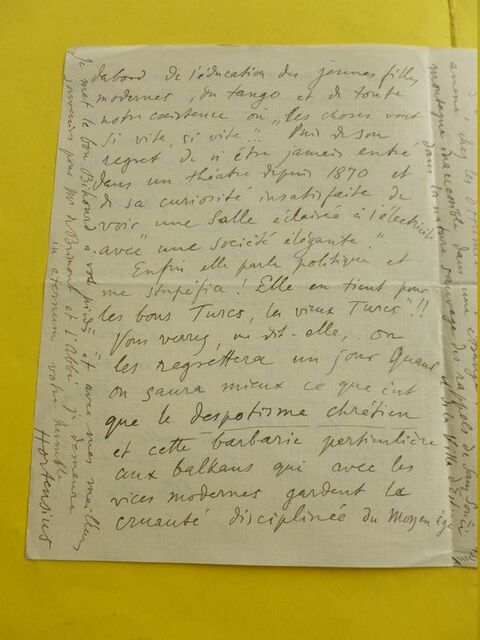 d'abord de l'éducation des jeunes filles
modernes, du tango et de toute
notre existence où „les choses vont
si vite, si vite"... Puis de son
regret de n'être jamais entré
dans un théâtre depuis 1870 et
de sa curiosité insatisfaite de
voir une salle éclairée à l'électricité
avec "une société élégante."
Enfin elle parla politique et
me stupéfia! Elle en tient pour
les bons Turcs, les vieux Turcs"!!
Vous verrez, me dit-elle, on
les regrettera un jour Quand
on saura mieux ce que c'est
que le despotisme chrétien
et cette barbarie particulière
aux balkans qui avec les
vices modernes gardent la
cruauté disciplinée du Moyen âge
Je met le bon à vos pieds et avec mes meilleurs
souvenirs pour Mr de Brimont et l'abbé je demeure
in eternum votre humble
Hortensius
amené, chez les
montagne inaccessible dans une
dans la nature sauvage des rappels de Sans Souci
et de la Ville d'Est